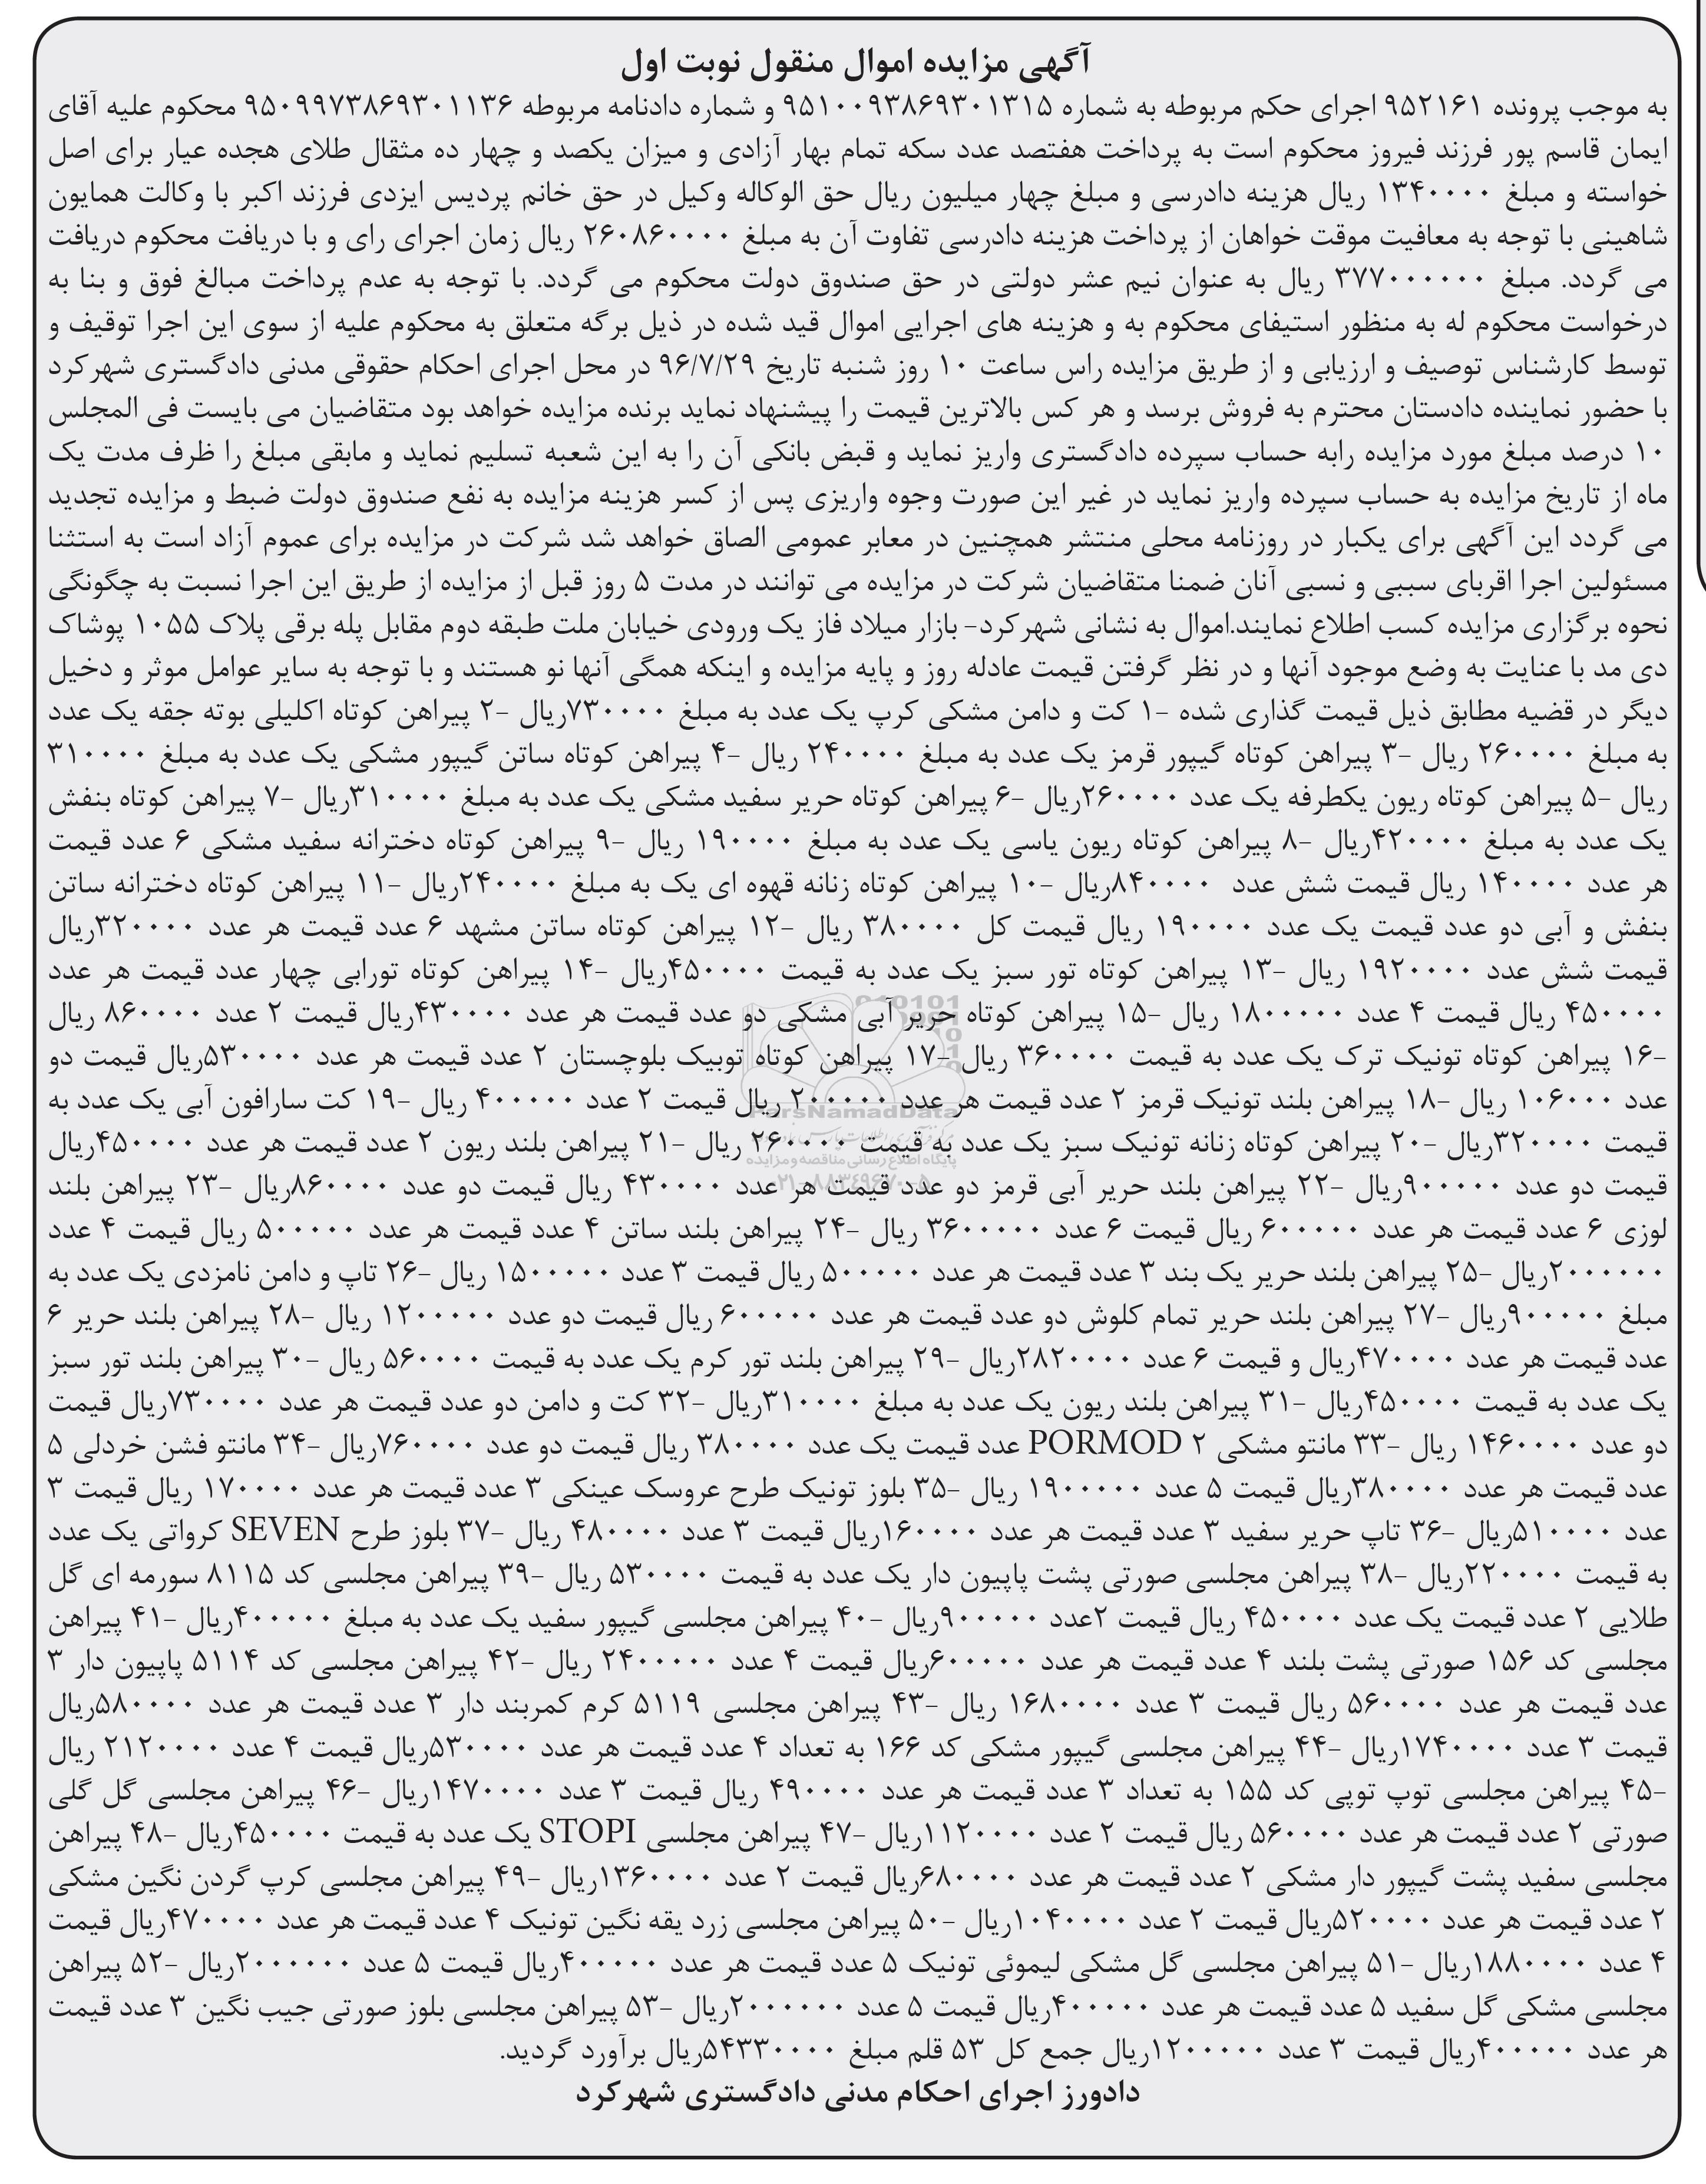 آگهی مزایده اموال منقول نوبت اول
به موجب پرونده ۹۵۲۱۶۱ اجرای حکم مربوطه به شماره ۹۵۱۰۰۹۳۸۶۹۳۰۱۳۱۵ و شماره دادنامه مربوطه ۹۵۰۹۹۷۳۸۶۹۳۰۱۱۳۶ محکوم علیه آقای
ایمان قاسم پور فرزند فیروز محکوم است به پرداخت هفتصد عدد سکه تمام بهار آزادی و میزان یکصد و چهار ده مثقال طلای هجده عیار برای اصل
خواسته و مبلغ ۱۳۴۰۰۰۰ ریال هزینه دادرسی و مبلغ چهار میلیون ریال حق الوکاله وکیل در حق خانم پردیس ایزدی فرزند اکبر با وکالت همایون
شاهینی با توجه به معافیت موقت خواهان از پرداخت هزینه دادرسی تفاوت آن به مبلغ ۲۶۰۸۶۰۰۰۰ ریال زمان اجرای رای و با دریافت محکوم دریافت
می گردد. مبلغ ۳۷۷۰۰۰۰۰۰ ریال به عنوان نیم عشر دولتی در حق صندوق دولت محکوم می گردد. با توجه به عدم پرداخت مبالغ فوق و بنا به
درخواست محکوم له به منظور استیفای محکوم به و هزینه های اجرایی اموال قید شده در ذیل برگه متعلق به محکوم علیه از سوی این اجرا توقیف و
توسط کارشناس توصیف و ارزیابی و از طریق مزایده راس ساعت ۱۰ روز شنبه تاریخ ۹۶/۷/۲۹ در محل اجرای احکام حقوقی مدنی دادگستری شهرکرد
با حضور نماینده دادستان محترم به فروش برسد و هر کس بالاترین قیمت را پیشنهاد نماید برنده مزایده خواهد بود متقاضیان می بایست فی المجلس
۱۰ درصد مبلغ مورد مزایده رابه حساب سپرده دادگستری واریز نماید و قبض بانکی آن را به این شعبه تسلیم نماید و مابقی مبلغ را ظرف مدت یک
ماه از تاریخ مزایده به حساب سپرده واریز نماید در غیر این صورت وجوه واریزی پس از کسر هزینه مزایده به نفع صندوق دولت ضبط و مزایده تجدید
می گردد این آگهی برای یکبار در روزنامه محلی منتشر همچنین در معابر عمومی الصاق خواهد شد شرکت در مزایده برای عموم آزاد است به استثنا
مسئولین اجرا اقربای سببی و نسبی آنان ضمنا متقاضیان شرکت در مزایده می توانند در مدت ۵ روز قبل از مزایده از طریق این اجرا نسبت به چگونگی
نحوه برگزاری مزایده کسب اطلاع نمایند.اموال به نشانی شهرکرد- بازار میلاد فاز یک ورودی خیابان ملت طبقه دوم مقابل پله برقی پلاک ۱۰۵۵ پوشاک
دی مد با عنایت به وضع موجود آنها و در نظر گرفتن قیمت عادله روز و پایه مزایده و اینکه همگی آنها نو هستند و با توجه به سایر عوامل موثر و دخیل
دیگر در قضیه مطابق ذیل قیمت گذاری شده -۱ کت و دامن مشکی کرپ یک عدد به مبلغ ۷۳۰۰۰۰ریال -۲ پیراهن کوتاه اکلیلی بوته جقه یک عدد
به مبلغ ۲۶۰۰۰۰ ریال -۳ پیراهن کوتاه گیپور قرمز یک عدد به مبلغ ۲۴۰۰۰۰ ریال -۴ پیراهن کوتاه ساتن گیپور مشکی یک عدد به مبلغ ۳۱۰۰۰۰
ریال -۵ پیراهن کوتاه ریون یکطرفه یک عدد ۲۶۰۰۰۰ریال -۶ پیراهن کوتاه حریر سفید مشکی یک عدد به مبلغ ۳۱۰۰۰۰ریال -۷ پیراهن کوتاه بنفش
یک عدد به مبلغ ۴۲۰۰۰۰ریال -۸ پیراهن کوتاه ریون یاسی یک عدد به مبلغ ۱۹۰۰۰۰ ریال -۹ پیراهن کوتاه دخترانه سفید مشکی ۶ عدد قیمت
هر عدد ۱۴۰۰۰۰ ریال قیمت شش عدد ۸۴۰۰۰۰ریال -۱۰ پیراهن کوتاه زنانه قهوه ای یک به مبلغ ۲۴۰۰۰۰ریال -۱۱ پیراهن کوتاه دخترانه ساتن
بنفش و آبی دو عدد قیمت یک عدد ۱۹۰۰۰۰ ریال قیمت کل ۳۸۰۰۰۰ ریال -۱۲ پیراهن کوتاه ساتن مشهد ۶ عدد قیمت هر عدد ۳۲۰۰۰۰ریال
قیمت شش عدد ۱۹۲۰۰۰۰ ریال -۱۳ پیراهن کوتاه تور سبز یک عدد به قیمت ۴۵۰۰۰۰ریال -۱۴ پیراهن کوتاه تورابی چهار عدد قیمت هر عدد
۴۵۰۰۰۰ ریال قیمت ۴ عدد ۱۸۰۰۰۰۰ ریال -۱۵ پیراهن کوتاه حریر آبی مشکی دو عدد قیمت هر عدد ۴۳۰۰۰۰ریال قیمت ۲ عدد ۸۶۰۰۰۰ ریال
-۱۶ پیراهن کوتاه تونیک ترک یک عدد به قیمت ۳۶۰۰۰۰ ریال -۱۷ پیراهن کوتاه توبیک بلوچستان ۲ عدد قیمت هر عدد ۵۳۰۰۰۰ریال قیمت دو
عدد ۱۰۶۰۰۰ ریال -۱۸ پیراهن بلند تونیک قرمز ۲ عدد قیمت هر عدد ۲۰۰۰۰۰ ریال قیمت ۲ عدد ۴۰۰۰۰۰ ریال -۱۹ کت سارافون آبی یک عدد به
قیمت ۳۲۰۰۰۰ریال -۲۰ پیراهن کوتاه زنانه تونیک سبز یک عدد به قیمت ۲۶۰۰۰۰ ریال -۲۱ پیراهن بلند ریون ۲ عدد قیمت هر عدد ۴۵۰۰۰۰ریال
قیمت دو عدد ۹۰۰۰۰۰ریال -۲۲ پیراهن بلند حریر آبی قرمز دو عدد قیمت هر عدد ۴۳۰۰۰۰ ریال قیمت دو عدد ۸۶۰۰۰۰ریال -۲۳ پیراهن بلند
لوزی ۶ عدد قیمت هر عدد ۶۰۰۰۰۰ ریال قیمت ۶ عدد ۳۶۰۰۰۰۰ ریال -۲۴ پیراهن بلند ساتن ۴ عدد قیمت هر عدد ۵۰۰۰۰۰ ریال قیمت ۴ عدد
۲۰۰۰۰۰۰ریال -۲۵ پیراهن بلند حریر یک بند ۳ عدد قیمت هر عدد ۵۰۰۰۰۰ ریال قیمت ۳ عدد ۱۵۰۰۰۰۰ ریال -۲۶ تاپ و دامن نامزدی یک عدد به
مبلغ ۹۰۰۰۰۰ریال -۲۷ پیراهن بلند حریر تمام کلوش دو عدد قیمت هر عدد ۶۰۰۰۰۰ ریال قیمت دو عدد ۱۲۰۰۰۰۰ ریال -۲۸ پیراهن بلند حریر ۶
عدد قیمت هر عدد ۴۷۰۰۰۰ریال و قیمت ۶ عدد ۲۸۲۰۰۰۰ریال -۲۹ پیراهن بلند تور کرم یک عدد به قیمت ۵۶۰۰۰۰ ریال -۳۰ پیراهن بلند تور سبز
یک عدد به قیمت ۴۵۰۰۰۰ریال -۳۱ پیراهن بلند ریون یک عدد به مبلغ ۳۱۰۰۰۰ریال -۳۲ کت و دامن دو عدد قیمت هر عدد ۷۳۰۰۰۰ریال قیمت
دو عدد ۱۴۶۰۰۰۰ ریال -۳۳ مانتو مشکی PORMOD ۲ عدد قیمت یک عدد ۳۸۰۰۰۰ ریال قیمت دو عدد ۷۶۰۰۰۰ریال -۳۴ مانتو فشن خردلی ۵
عدد قیمت هر عدد ۳۸۰۰۰۰ریال قیمت ۵ عدد ۱۹۰۰۰۰۰ ریال -۳۵ بلوز تونیک طرح عروسک عینکی ۳ عدد قیمت هر عدد ۱۷۰۰۰۰ ریال قیمت ۳
عدد ۵۱۰۰۰۰ریال -۳۶ تاپ حریر سفید ۳ عدد قیمت هر عدد ۱۶۰۰۰۰ریال قیمت ۳ عدد ۴۸۰۰۰۰ ریال -۳۷ بلوز طرح SEVEN کرواتی یک عدد
به قیمت ۲۲۰۰۰۰ریال -۳۸ پیراهن مجلسی صورتی پشت پاپیون دار یک عدد به قیمت ۵۳۰۰۰۰ ریال -۳۹ پیراهن مجلسی کد ۸۱۱۵ سورمه ای گل
طلایی ۲ عدد قیمت یک عدد ۴۵۰۰۰۰ ریال قیمت ۲عدد ۹۰۰۰۰۰ریال -۴۰ پیراهن مجلسی گیپور سفید یک عدد به مبلغ ۴۰۰۰۰۰ریال -۴۱ پیراهن
مجلسی کد ۱۵۶ صورتی پشت بلند ۴ عدد قیمت هر عدد ۶۰۰۰۰۰ریال قیمت ۴ عدد ۲۴۰۰۰۰۰ ریال -۴۲ پیراهن مجلسی کد ۵۱۱۴ پاپیون دار ۳
عدد قیمت هر عدد ۵۶۰۰۰۰ ریال قیمت ۳ عدد ۱۶۸۰۰۰۰ ریال -۴۳ پیراهن مجلسی ۵۱۱۹ کرم کمربند دار ۳ عدد قیمت هر عدد ۵۸۰۰۰۰ریال
قیمت ۳ عدد ۱۷۴۰۰۰۰ریال -۴۴ پیراهن مجلسی گیپور مشکی کد ۱۶۶ به تعداد ۴ عدد قیمت هر عدد ۵۳۰۰۰۰ریال قیمت ۴ عدد ۲۱۲۰۰۰۰ ریال
-۴۵ پیراهن مجلسی توپ توپی کد ۱۵۵ به تعداد ۳ عدد قیمت هر عدد ۴۹۰۰۰۰ ریال قیمت ۳ عدد ۱۴۷۰۰۰۰ریال -۴۶ پیراهن مجلسی گل گلی
صورتی ۲ عدد قیمت هر عدد ۵۶۰۰۰۰ ریال قیمت ۲ عدد ۱۱۲۰۰۰۰ریال -۴۷ پیراهن مجلسی STOPI یک عدد به قیمت ۴۵۰۰۰۰ریال -۴۸ پیراهن
مجلسی سفید پشت گیپور دار مشکی ۲ عدد قیمت هر عدد ۶۸۰۰۰۰ریال قیمت ۲ عدد ۱۳۶۰۰۰۰ریال -۴۹ پیراهن مجلسی کرپ گردن نگین مشکی
۲ عدد قیمت هر عدد ۵۲۰۰۰۰ریال قیمت ۲ عدد ۱۰۴۰۰۰۰ریال -۵۰ پیراهن مجلسی زرد یقه نگین تونیک ۴ عدد قیمت هر عدد ۴۷۰۰۰۰ریال قیمت
۴ عدد ۱۸۸۰۰۰۰ریال -۵۱ پیراهن مجلسی گل مشکی لیموئی تونیک ۵ عدد قیمت هر عدد ۴۰۰۰۰۰ریال قیمت ۵ عدد ۲۰۰۰۰۰۰ریال -۵۲ پیراهن
مجلسی مشکی گل سفید ۵ عدد قیمت هر عدد ۴۰۰۰۰۰ریال قیمت ۵ عدد ۲۰۰۰۰۰۰ریال -۵۳ پیراهن مجلسی بلوز صورتی جیب نگین ۳ عدد قیمت
هر عدد ۴۰۰۰۰۰ریال قیمت ۳ عدد ۱۲۰۰۰۰۰ریال جمع کل ۵۳ قلم مبلغ ۵۴۳۳۰۰۰۰ریال برآورد گردید.
دادورز اجرای احکام مدنی دادگستری شهرکرد
ParsNamadData
پایگاه اطلاع رسانی مناقصه و مزایده